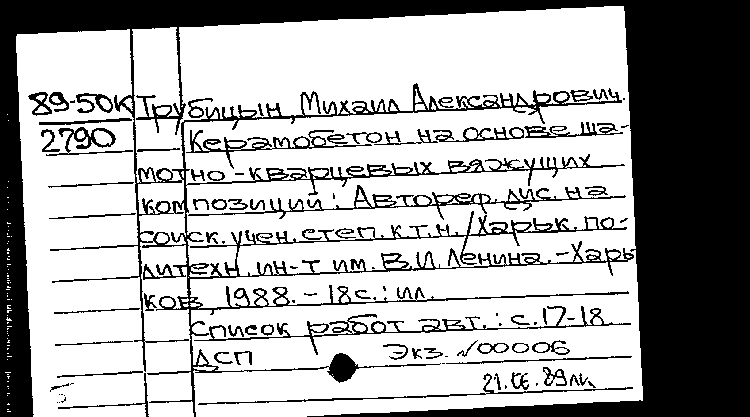 89-50К Трубицын, Михаил Александрович.
2790 Керамобетон на основе ша-
мотно-кварцевых вяжущих
композиций: Автореф. дис. на
соиск. учен. степ. к.т.н. /Харьк. по-
литехн. ин-т им. В.И. Ленина. - Харь-
ков, 1988. - 18с.: ил.
Список работ авт.: с.17-18
ДСП Экз. №00006
21.06.89